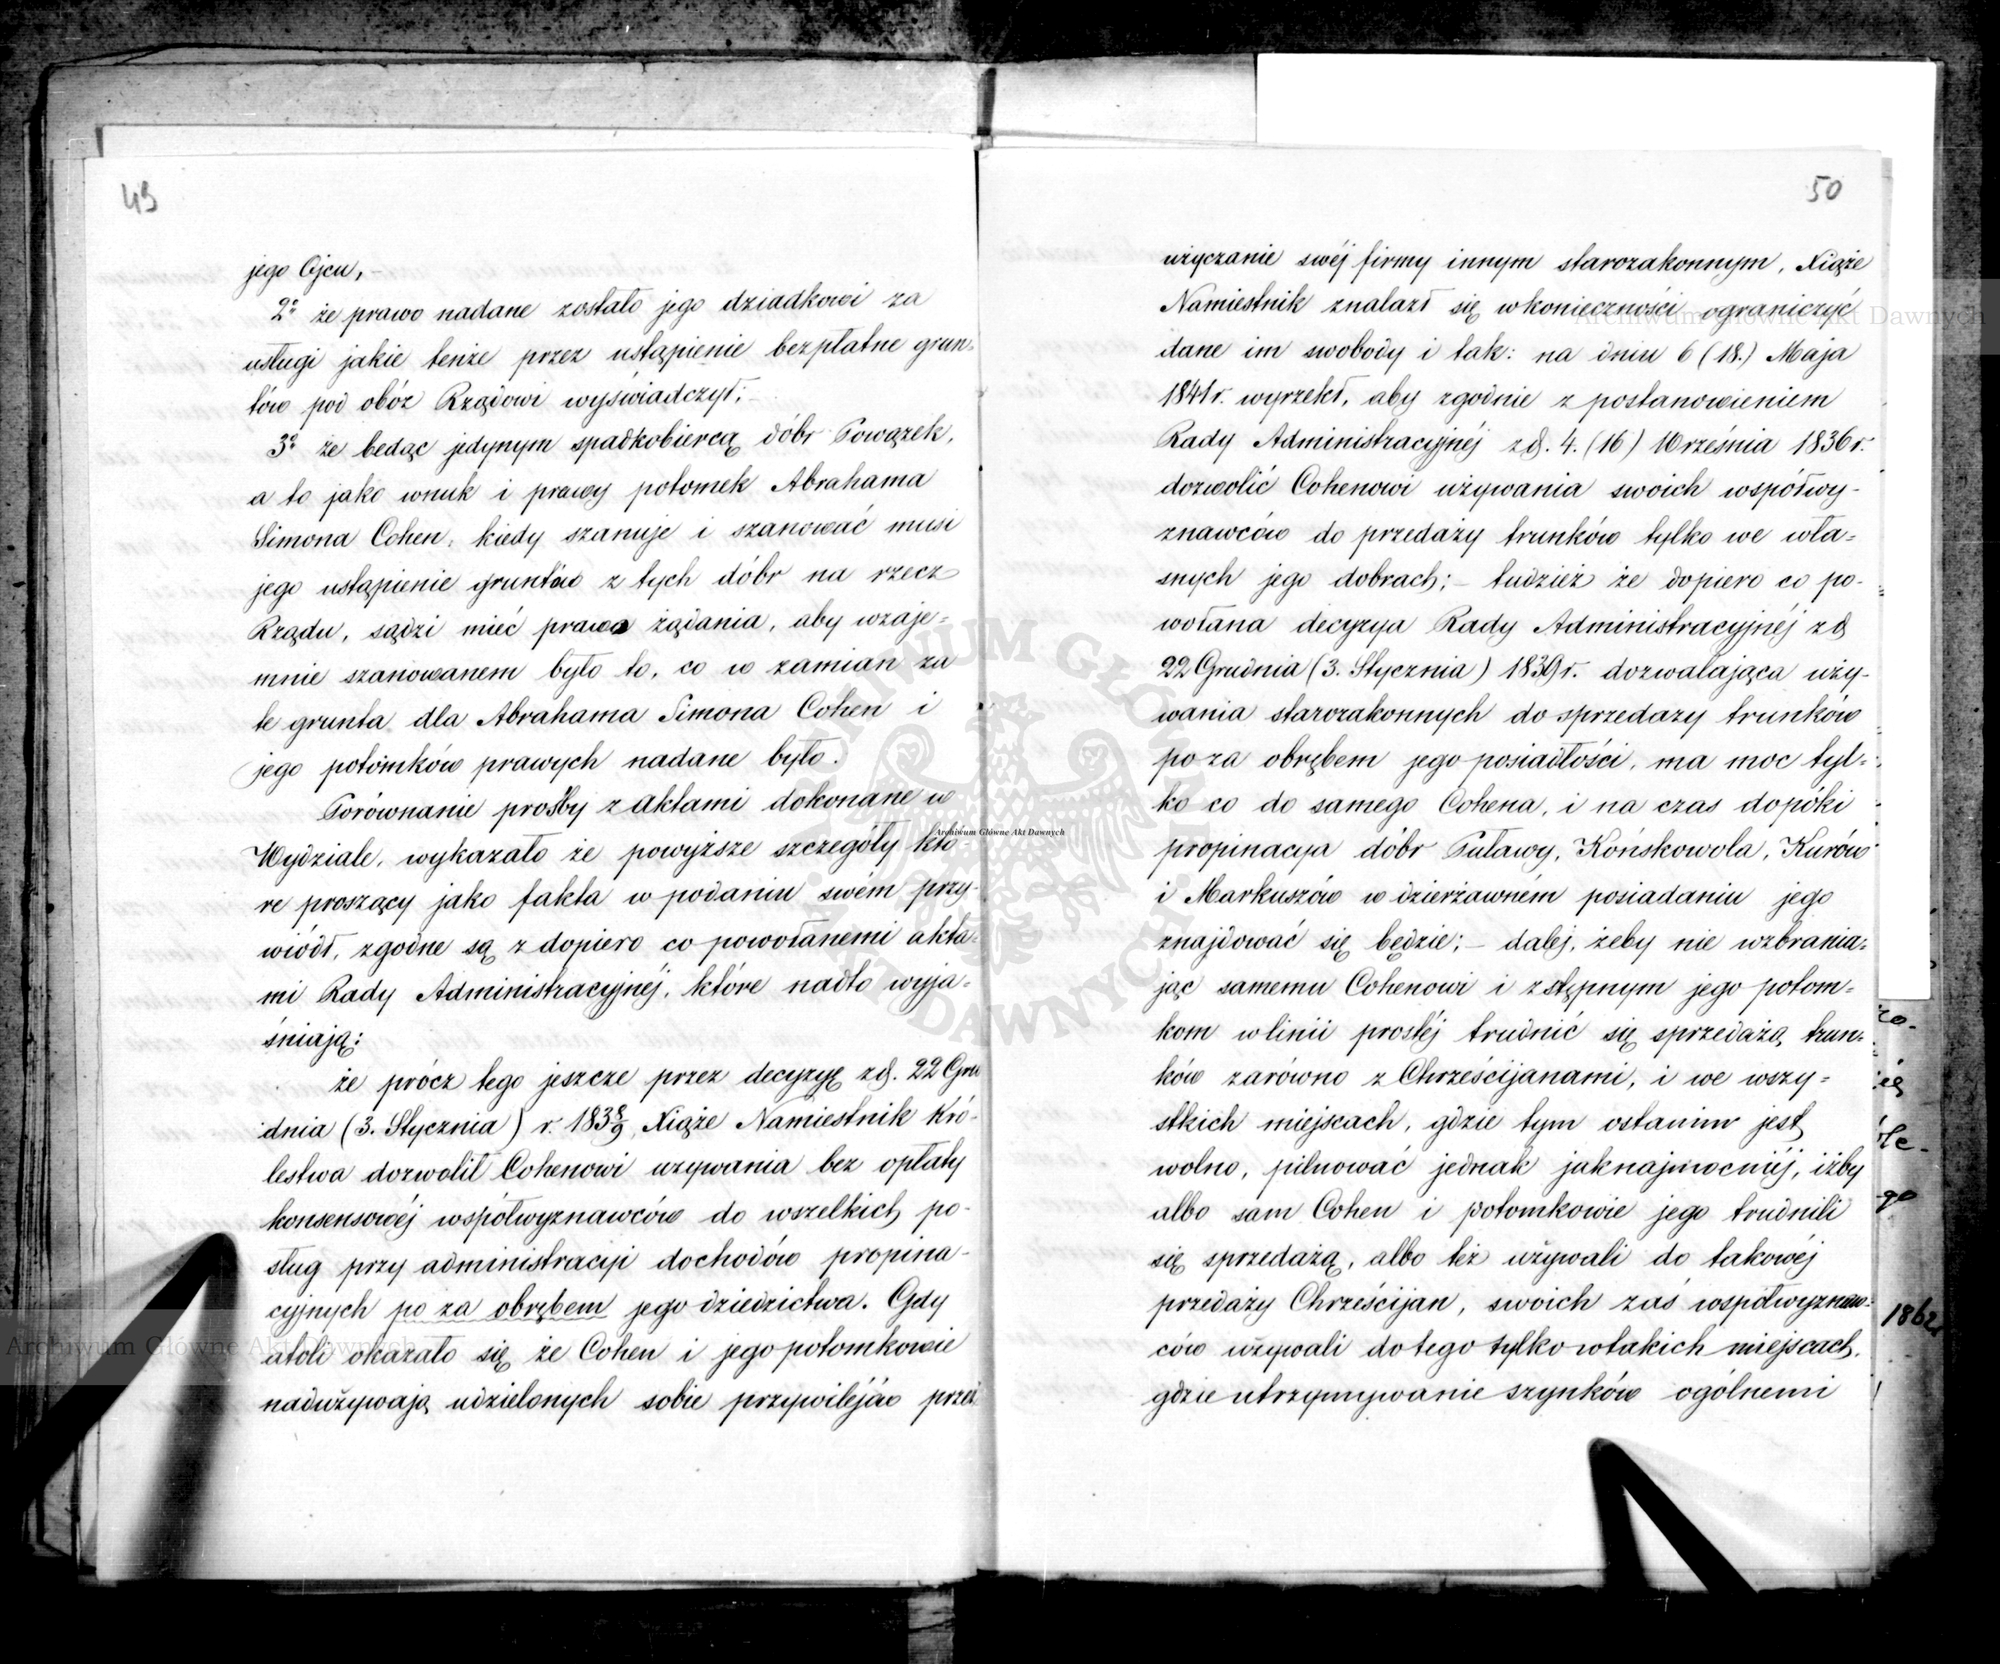 49
jego Ojcu, -
2º że prawo nadane zostało jego dziadkowi za
usługi jakie tenże przez ustąpienie bezpłatne grun-
tów pod obóz Rządowi wyświadczył; -
3º że bedąc jedynym spadkobiercą dóbr Powązek,
a to jako wnuk i prawy potomek Abrahama
Simona Cohen, kiedy szanuje i szanować musi
jego ustąpienie gruntów z tych dóbr na rzecz
Rządu, sądzi mieć prawo żądania, aby wzaje-
mnie szanowanem było to, co w zamian za
te grunta dla Abrahama Simona Cohen i
jego potomków prawych nadane było.
Porównanie prośby z aktami dokonane w
Wydziale, wykazało że powyższe szczegóły któ-
re proszący jako fakta w podaniu swém przy-
wiódł, zgodne są z dopiero co powołanemi akta-
mi Rady Administracyjnéj, które nadto wyja-
śniają:
że prócz tego jeszcze przez decyzyę zd. 22 Gru
dnia (3. Stycznia) r. 1838/9, Xiąże Namiestnik Kró-
lestwa dozwolił Cohenowi uzywania bez opłaty
konsensowéj współwyznawców do wszelkich po-
sług przy administracyi dochodów propina-
cyjnych po za obrębem jego dziedzictwa. Gdy
atoli okazało się że Cohen i jego potomkowie
nadużywają udzielonych sobie przywilejów przez
50
użyczanie swéj firmy innym starozakonnym, Xiąże
Namiestnik znalazł się w konieczności ograniczyć
dane im swobody i tak: na dniu 6 (18.) Maja
1841 r. wyrzekł, aby zgodnie z postanowieniem
Rady Administracyjnéj zd. 4. (16) Września 1836 r.
dozwolić Cohenowi używania swoich współwy-
znawców do przedaży trunków tylko we wła-
snych jego dobrach; - tudzież że dopiero co po-
wołana decyzya Rady Administracyjnéj zd
22 Grudnia (3. Stycznia) 1839 r. dozwalająca uży-
wania starozakonnych do sprzedazy trunków
po za obrębem jego posiadłości, ma moc tyl-
ko co do samego Cohena, i na czas dopóki
propinacya dóbr Puławy, Końskowola, Kurów
i Markuszów w dzierżawném posiadaniu jego
znajdować się będzie; - dalej, żeby nie wzbrania-
jąc samemu Cohenowi i zstępnym jego potom-
kom w linii prostéj trudnić się sprzedażą trun-
ków zarówno z Chrześcijanami, i we wszy-
stkich miejscach, gdzie tym ostatnim jest
wolno, pilnować jednak jaknajmocniéj, iżby
albo sam Cohen i potomkowie jego trudnili
się sprzedażą, albo też używali do takowéj
przedaży Chrześcijan, swoich zaś współwyznaw-
ców używali do tego tylko w takich miejscach,
gdzie utrzymywanie szynków ogólnemi
1862
Archiwum Główne Akt Dawnych
Archiwum Główne Akt Dawnych
Archiwum Główne Akt Dawnych
ARCHIWUM GŁÓWNE AKT DAWNYCH